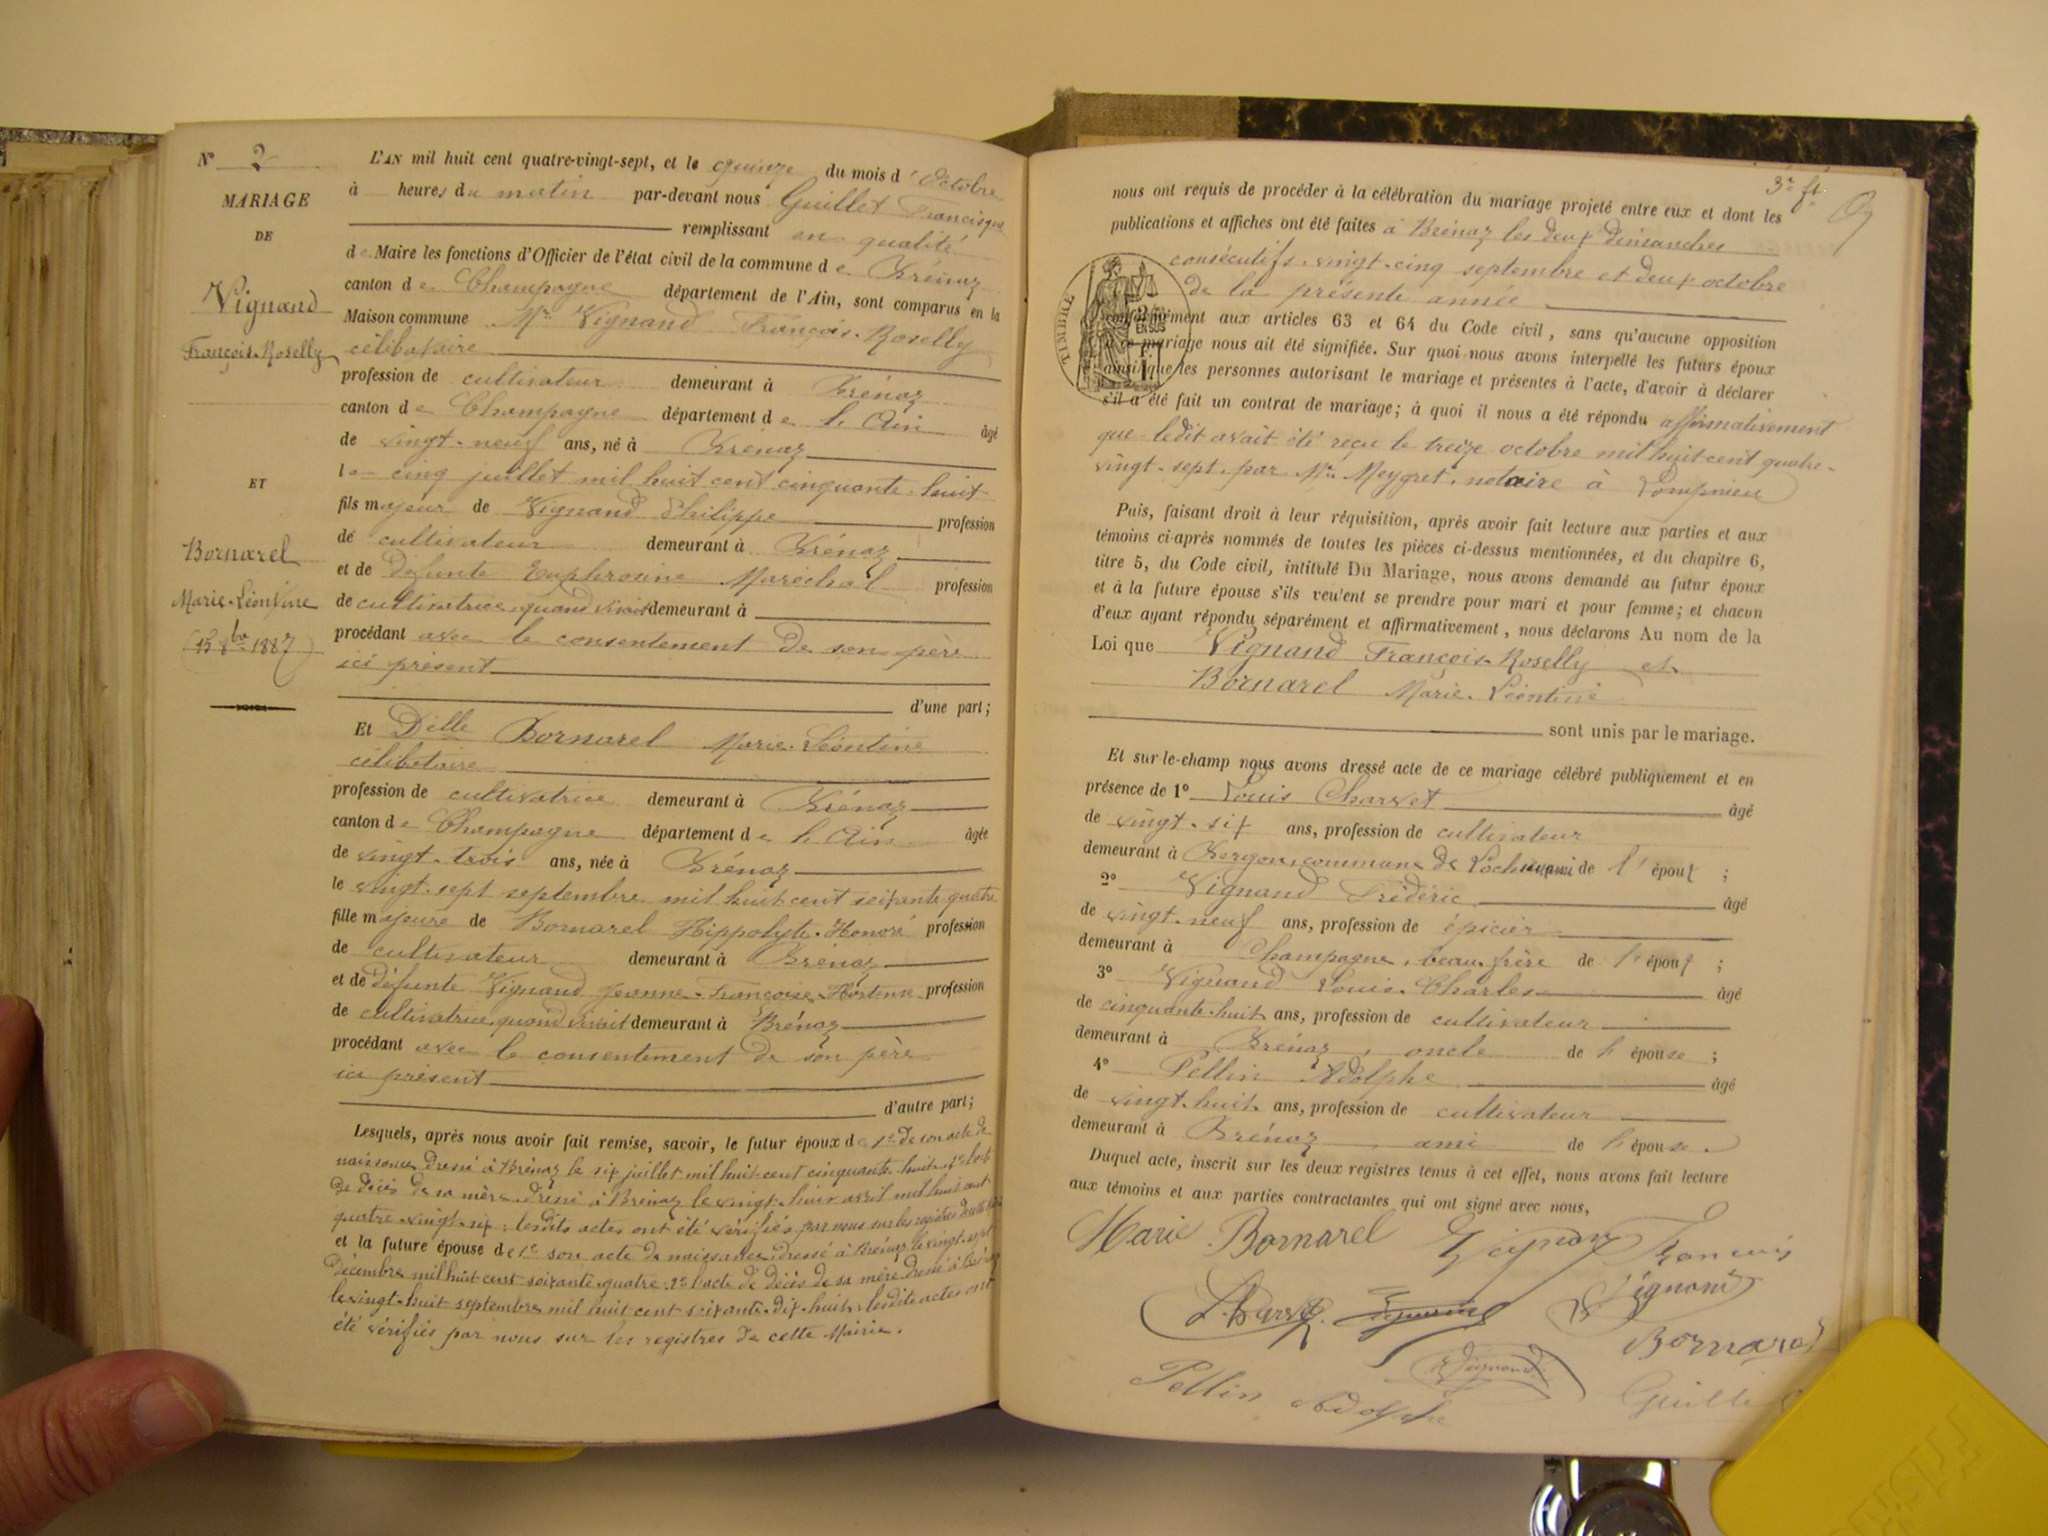 N° 2
MARIAGE
DE
Vignand
François-Roselly
ET
Bornarel
Marie-Léontine
(15 8bre 1887)
L'AN mil huit cent quatre-vingt-sept, et le quinze du mois d'Octobre
à heures du matin par-devant nous Guillet Francisque
remplissant en qualité
de Maire les fonctions d'Officier de l'état civil de la commune de Brénaz
canton de Champagne département de l'Ain, sont comparus en la
Maison commune Mr Vignand François-Roselly
célibataire
profession de cultivateur demeurant à Brénaz
canton de Champagne département de l'Ain âgé
de vingt-neuf ans, né à Brénaz
le cinq juillet mil huit cent cinquante-huit
fils majeur de Vignand Philippe profession
de cultivateur demeurant à Brénaz
et de défunte Euphrosine Maréchal profession
de cultivatrice quand vivait demeurant à
procédant avec le consentement de son père
ici présent
d'une part;
Et Delle Bornarel Marie-Léontine
célibataire
profession de cultivatrice demeurant à Brénaz
canton de Champagne département de l'Ain âgée
de vingt-trois ans, née à Brénaz
le vingt-sept septembre mil huit cent seixante quatre
fille majeure de Bornarel Hippolyte-Honoré profession
de cultivateur demeurant à Brénaz
et de défunte Vignand Jeanne-Françoise-Hortense profession
de cultivatrice quand vivait demeurant à Brénaz
procédant avec le consentement de son père
ici présent
d'autre part;
Lesquels, après nous avoir fait remise, savoir, le futur époux de 1° de son acte de
naissance dressé à Brénaz le six juillet mil huit cent cinquante-huit, 2° l'acte
de décès de sa mère dressé à Brénaz le vingt-huit avril mil huit cent
quatre-vingt-six; lesdits actes ont été vérifiés par nous sur les registres de cette
et la future épouse de 1° son acte de naissance dressé à Brénaz le vingt-sept
Décembre mil huit cent seixante-quatre 2° l'acte de décès de sa mère dressé à Brénaz
le vingt-huit septembre mil huit cent seixante-dix-huit, lesdits actes ont
été vérifiés par nous sur les registres de cette Mairie.
3e ft.
nous ont requis de procéder à la célébration du mariage projeté entre eux et dont les
publications et affiches ont été faites à Brénaz les deux dimanches
consécutifs vingt-cinq septembre et deux octobre
de la présente année
TIMBRE
2/10
EN SUS
conformément aux articles 63 et 64 du Code civil, sans qu'aucune opposition
à ce mariage nous ait été signifiée. Sur quoi nous avons interpellé les futurs époux
ainsi que les personnes autorisant le mariage et présentes à l'acte, d'avoir à déclarer
s'il a été fait un contrat de mariage; à quoi il nous a été répondu affirmativement
que ledit avait été reçu le treize octobre mil huit cent quatre-
vingt-sept par Me Meygret, notaire à Lompnieu
Puis, faisant droit à leur réquisition, après avoir fait lecture aux parties et aux
témoins ci-après nommés de toutes les pièces ci-dessus mentionnées, et du chapitre 6,
titre 5, du Code civil, intitulé Du Mariage, nous avons demandé au futur époux
et à la future épouse s'ils veulent se prendre pour mari et pour femme; et chacun
d'eux ayant répondu séparément et affirmativement, nous déclarons Au nom de la
Loi que Vignand François-Roselly et
Bornarel Marie-Léontine
sont unis par le mariage.
Et sur-le-champ nous avons dressé acte de ce mariage célébré publiquement et en
présence de 1° Louis Charvet âgé
de vingt-six ans, profession de cultivateur
demeurant à commune de ami de l'époux ;
2° Vignand Frédéric âgé
de vingt-neuf ans, profession de épicier
demeurant à Champagne, beau-frère de l'époux ;
3° Vignand Louis-Charles âgé
de cinquante-huit ans, profession de cultivateur
demeurant à Brénaz, oncle de l'épouse ;
4° Pellin Adolphe âgé
de vingt-huit ans, profession de cultivateur
demeurant à Brénaz, ami de l'épouse.
Duquel acte, inscrit sur les deux registres tenus à cet effet, nous avons fait lecture
aux témoins et aux parties contractantes qui ont signé avec nous,
Marie Bornarel Vignand François
L. Charvet Vignand
Bornarel
Vignand
Pellin Adolphe Guillet